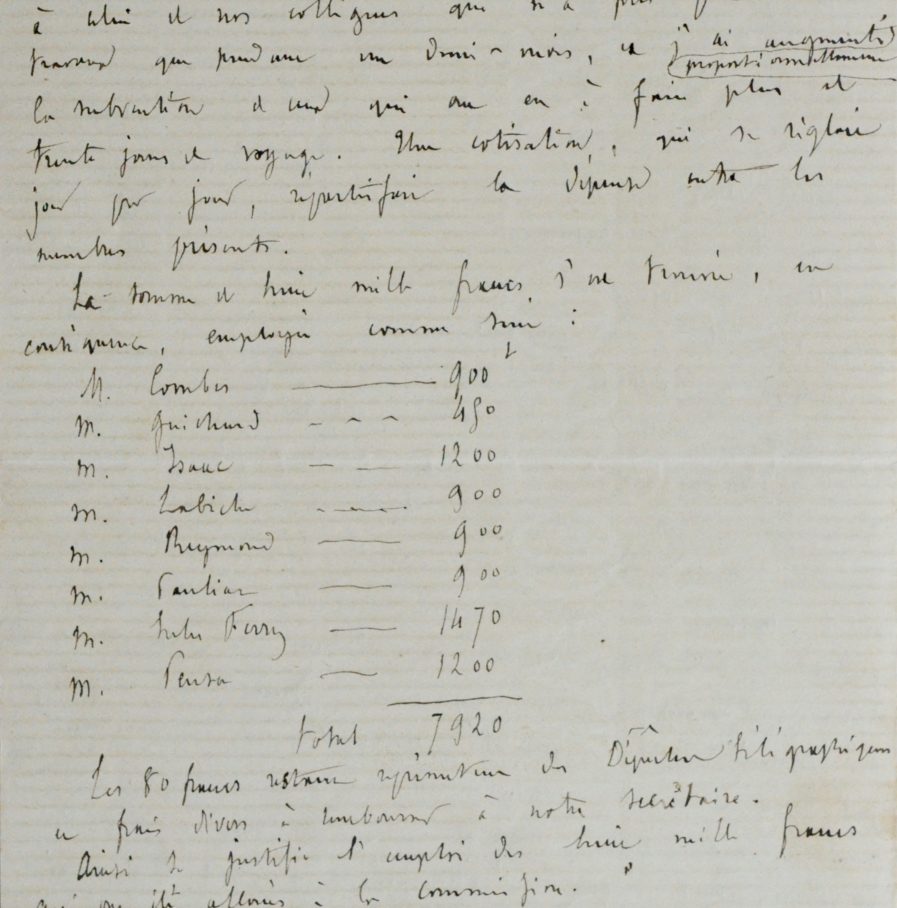 à celui de nos collègues qui n'a pas
travaillé que pendant un demi-mois, et j'ai augmenté
proportionnellement
la subvention de ceux qui ont eu à faire plus de
trente jours de voyage. Une cotisation, qui se réglait
jour par jour, répartissait la dépense entre les
membres présents.
La somme de huit mille francs s'est trouvée, en
conséquence, employée comme suit :
M. Combes 900 f
M. Guichard 450
M. Isaac 1200
M. Labiche 900
M. Reymond 900
M. Pauliat 900
M. Jules Ferry 1470
M. Pensa 1200
Total 7920
Les 80 francs restant représentent des Dépêches télégraphiques
et frais divers à rembourser à notre secrétaire.
Ainsi se justifie l'emploi des huit mille francs
qui ont été alloués à la commission.